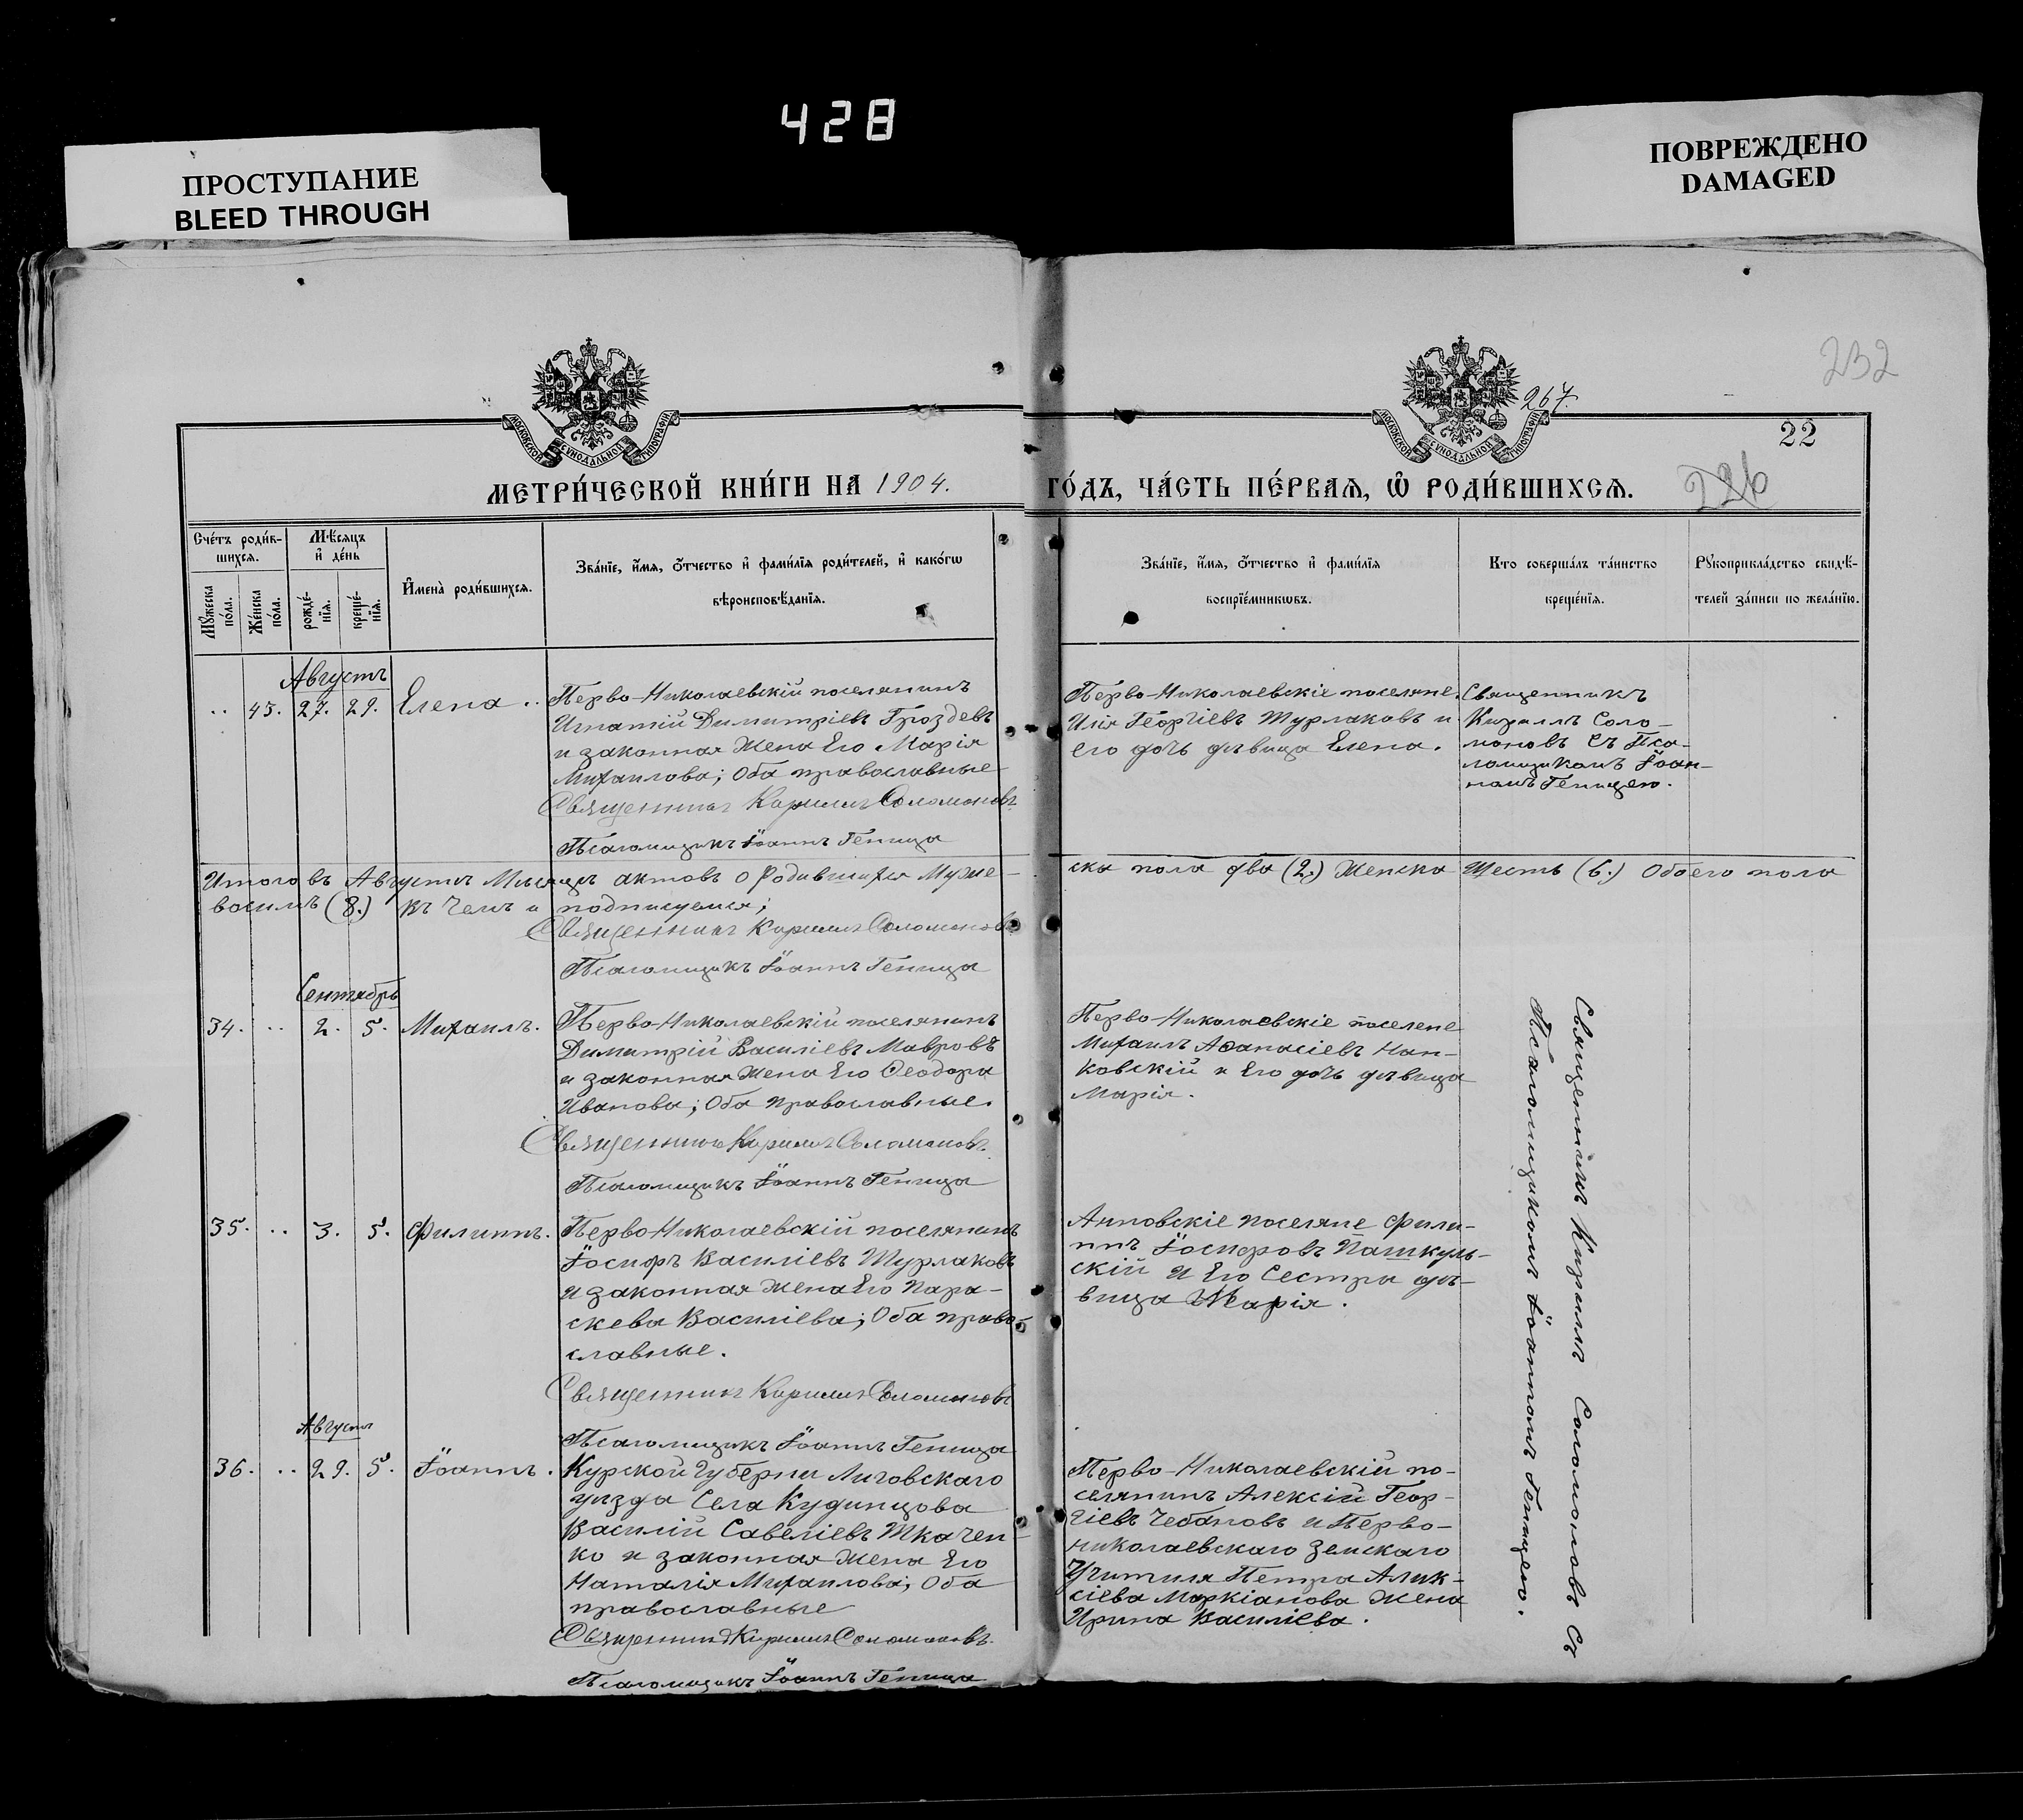 428
ПРОСТУПАНИЕ
BLEED THROUGH
ПОВРЕЖДЕНО
DAMAGED
232
267.
22
226
МОСКОВСКОЙ СѴНОДАЛЬНОЙ ТИПОГРАФІИ
МОСКОВСКОЙ СѴНОДАЛЬНОЙ ТИПОГРАФІИ
МЕТРИ́ЧЕСКОЙ КНИ́ГИ НА 1904. ГО́ДЪ, ЧА́СТЬ ПЕ́РВАѦ, Ѡ҆ РОДИ́ВШИХСѦ.
Сче́тъ роди́в-
шихсѧ.
Мѣ́сѧцъ
и҆ де́нь
Мꙋ́жеска
по́ла.
Же́нска
по́ла.
рожде́-
нїѧ.
креще́-
нїѧ.
И҆мена̀ роди́вшихсѧ.
Зва́нїе, и҆́мѧ, ѻ҆́тчество и҆ фами́лїѧ роди́телей, и҆ како́гѡ
вѣроисповѣ́данїѧ.
Зва́нїе, и҆́мѧ, ѻ҆́тчество и҆ фами́лїѧ
воспрїе́мникѡвъ.
Кто соверша́лъ та́инство
креще́нїѧ.
Рꙋкоприкла́дство свидѣ́-
телей за́писи по жела́нїю.
Августъ
.. 45. 27. 29. Елена ..
Перво-Николаевскій поселянинъ
Игнатій Димитріевъ Гроздевъ
и законная жена Его Марія
Михаилова; Оба православные
Священникъ Кириллъ Соломоновъ.
Псаломщикъ Іоаннъ Геница
Перво-Николаевскіе поселяне.
Илія Георгіевъ Турлаковъ и
его дочь дѣвица Елена.
Священникъ
Кириллъ Соло-
моновъ Съ Пса-
ломщикомъ Іоан-
номъ Геницею.
Итого въ Августѣ Мѣсяцѣ актовъ о Родившихся Муже-
ска пола два (2.) Женска Шесть (6.) Обоего пола
восемь (8.) Къ чемъ и подписуемся;
Священникъ Кириллъ Соломоновъ
Псаломщикъ Іоаннъ Геница
Сентябрь
34. .. 2. 5. Михаилъ.
Перво-Николаевскій поселянинъ
Димитрій Василіевъ Мавровъ
и законная жена Его Ѳеодора
Иванова; Оба православные.
Священникъ Кириллъ Соломоновъ.
Псаломщикъ Іоаннъ Геница
Перво-Николаевскіе поселене
Михаилъ Аѳанасіевъ Нан-
ковскій и Его дочь дѣвица
Марія.
35. .. 3. 5. Филиппъ.
Перво-Николаевскій поселянинъ
Іосифъ Василіевъ Турлаковъ
и законная жена Его Пара-
скева Василіева; Оба право-
славные.
Священникъ Кириллъ Соломоновъ
Псаломщикъ Іоаннъ Геница
Анновскіе поселяне Фили-
ппъ Іосифовъ Пашкуль-
скій и Его Сестра дѣ-
вица Марія.
Августъ
36. .. 29. 5. Іоаннъ.
Курской Губерніи Лиговскаго
уѣзда Села Кудинцова
Василій Савеліевъ Ткачен-
ко и законная жена Его
Наталія Михаилова; Оба
православные
Священникъ Кириллъ Соломоновъ.
Псаломщикъ Іоаннъ Геница
Перво-Николаевскій по-
селянинъ Алексій Геор-
гіевъ Чебановъ и Перво-
николаевскаго Земскаго
Учителя Петра Алек-
сіева Маркіанова жена
Ирина Василіева.
Священникъ Кириллъ Соломоновъ Съ
Псаломщикомъ Іоанномъ Геницею.